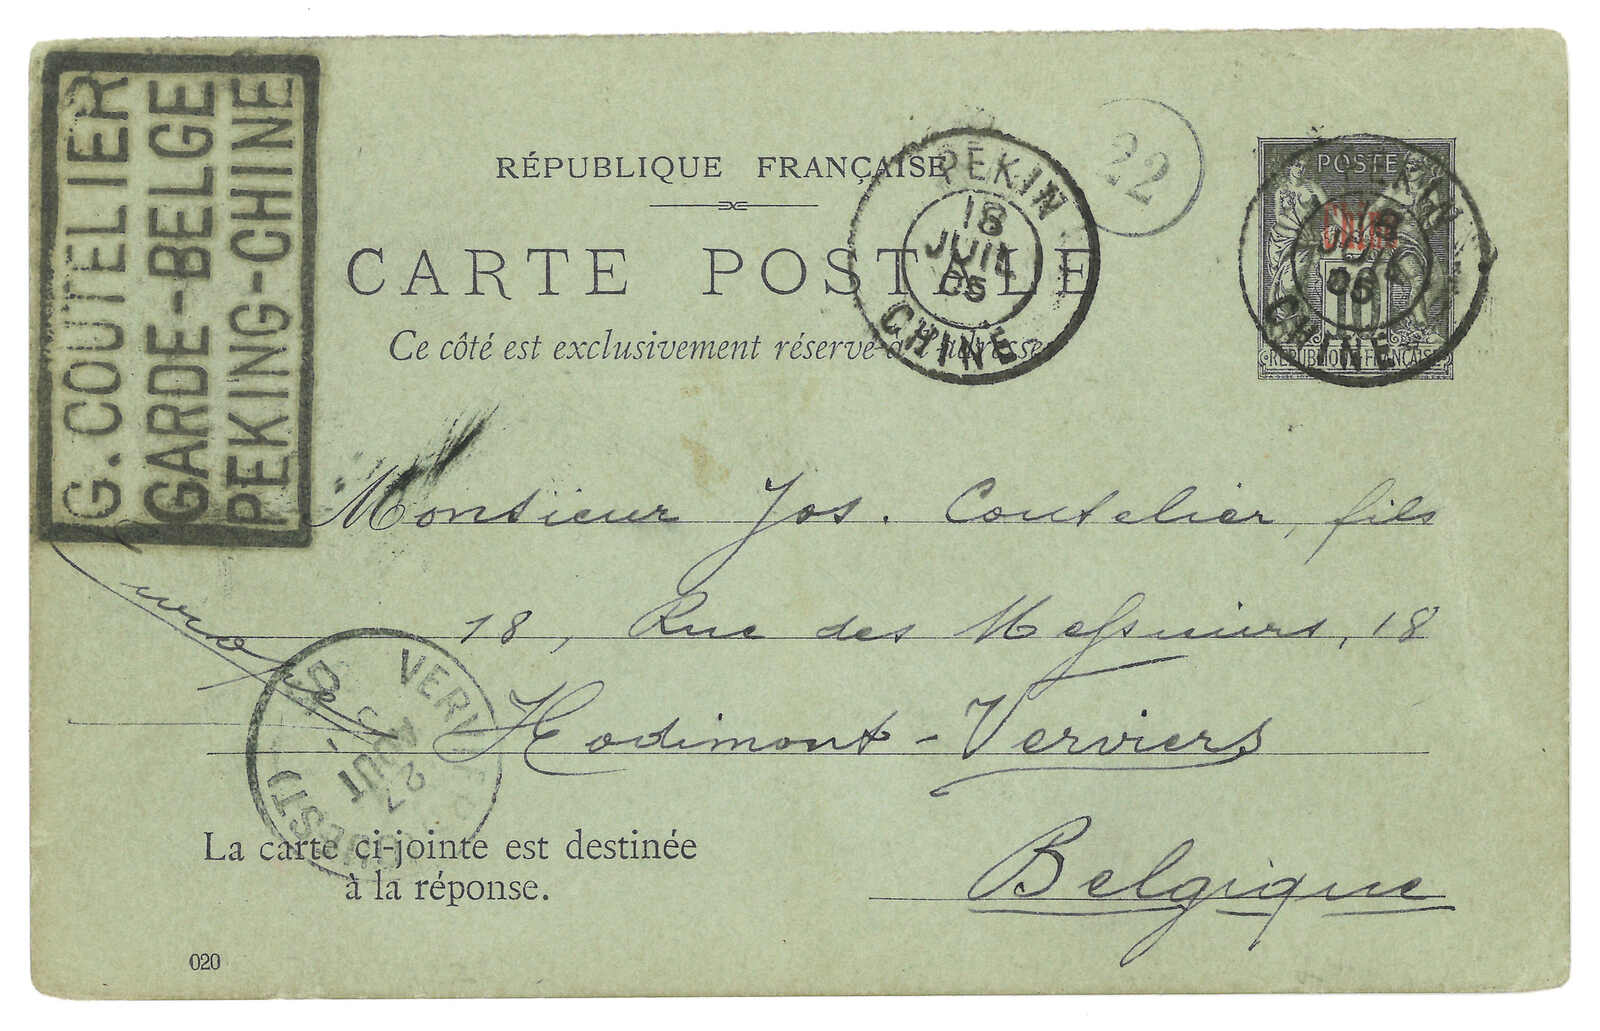 G. COUTELIER
GARDE-BELGE
PEKING-CHINE
RÉPUBLIQUE FRANÇAISE
CARTE POSTALE
Ce côté est exclusivement réservé à l'adresse
PEKIN
18
JUIL
05
CHINE
22
POSTE
Chine
10
REPUBLIQUE FRANCAISE
PEKIN
18
JUIL
05
CHINE
Monsieur Jos. Coutelier, fils
18, Rue des Messieurs, 18
Hodimont-Verviers
Belgique
via
VERVIERS
(OUEST)
27
AOUT
05
La carte ci-jointe est destinée
à la réponse.
020